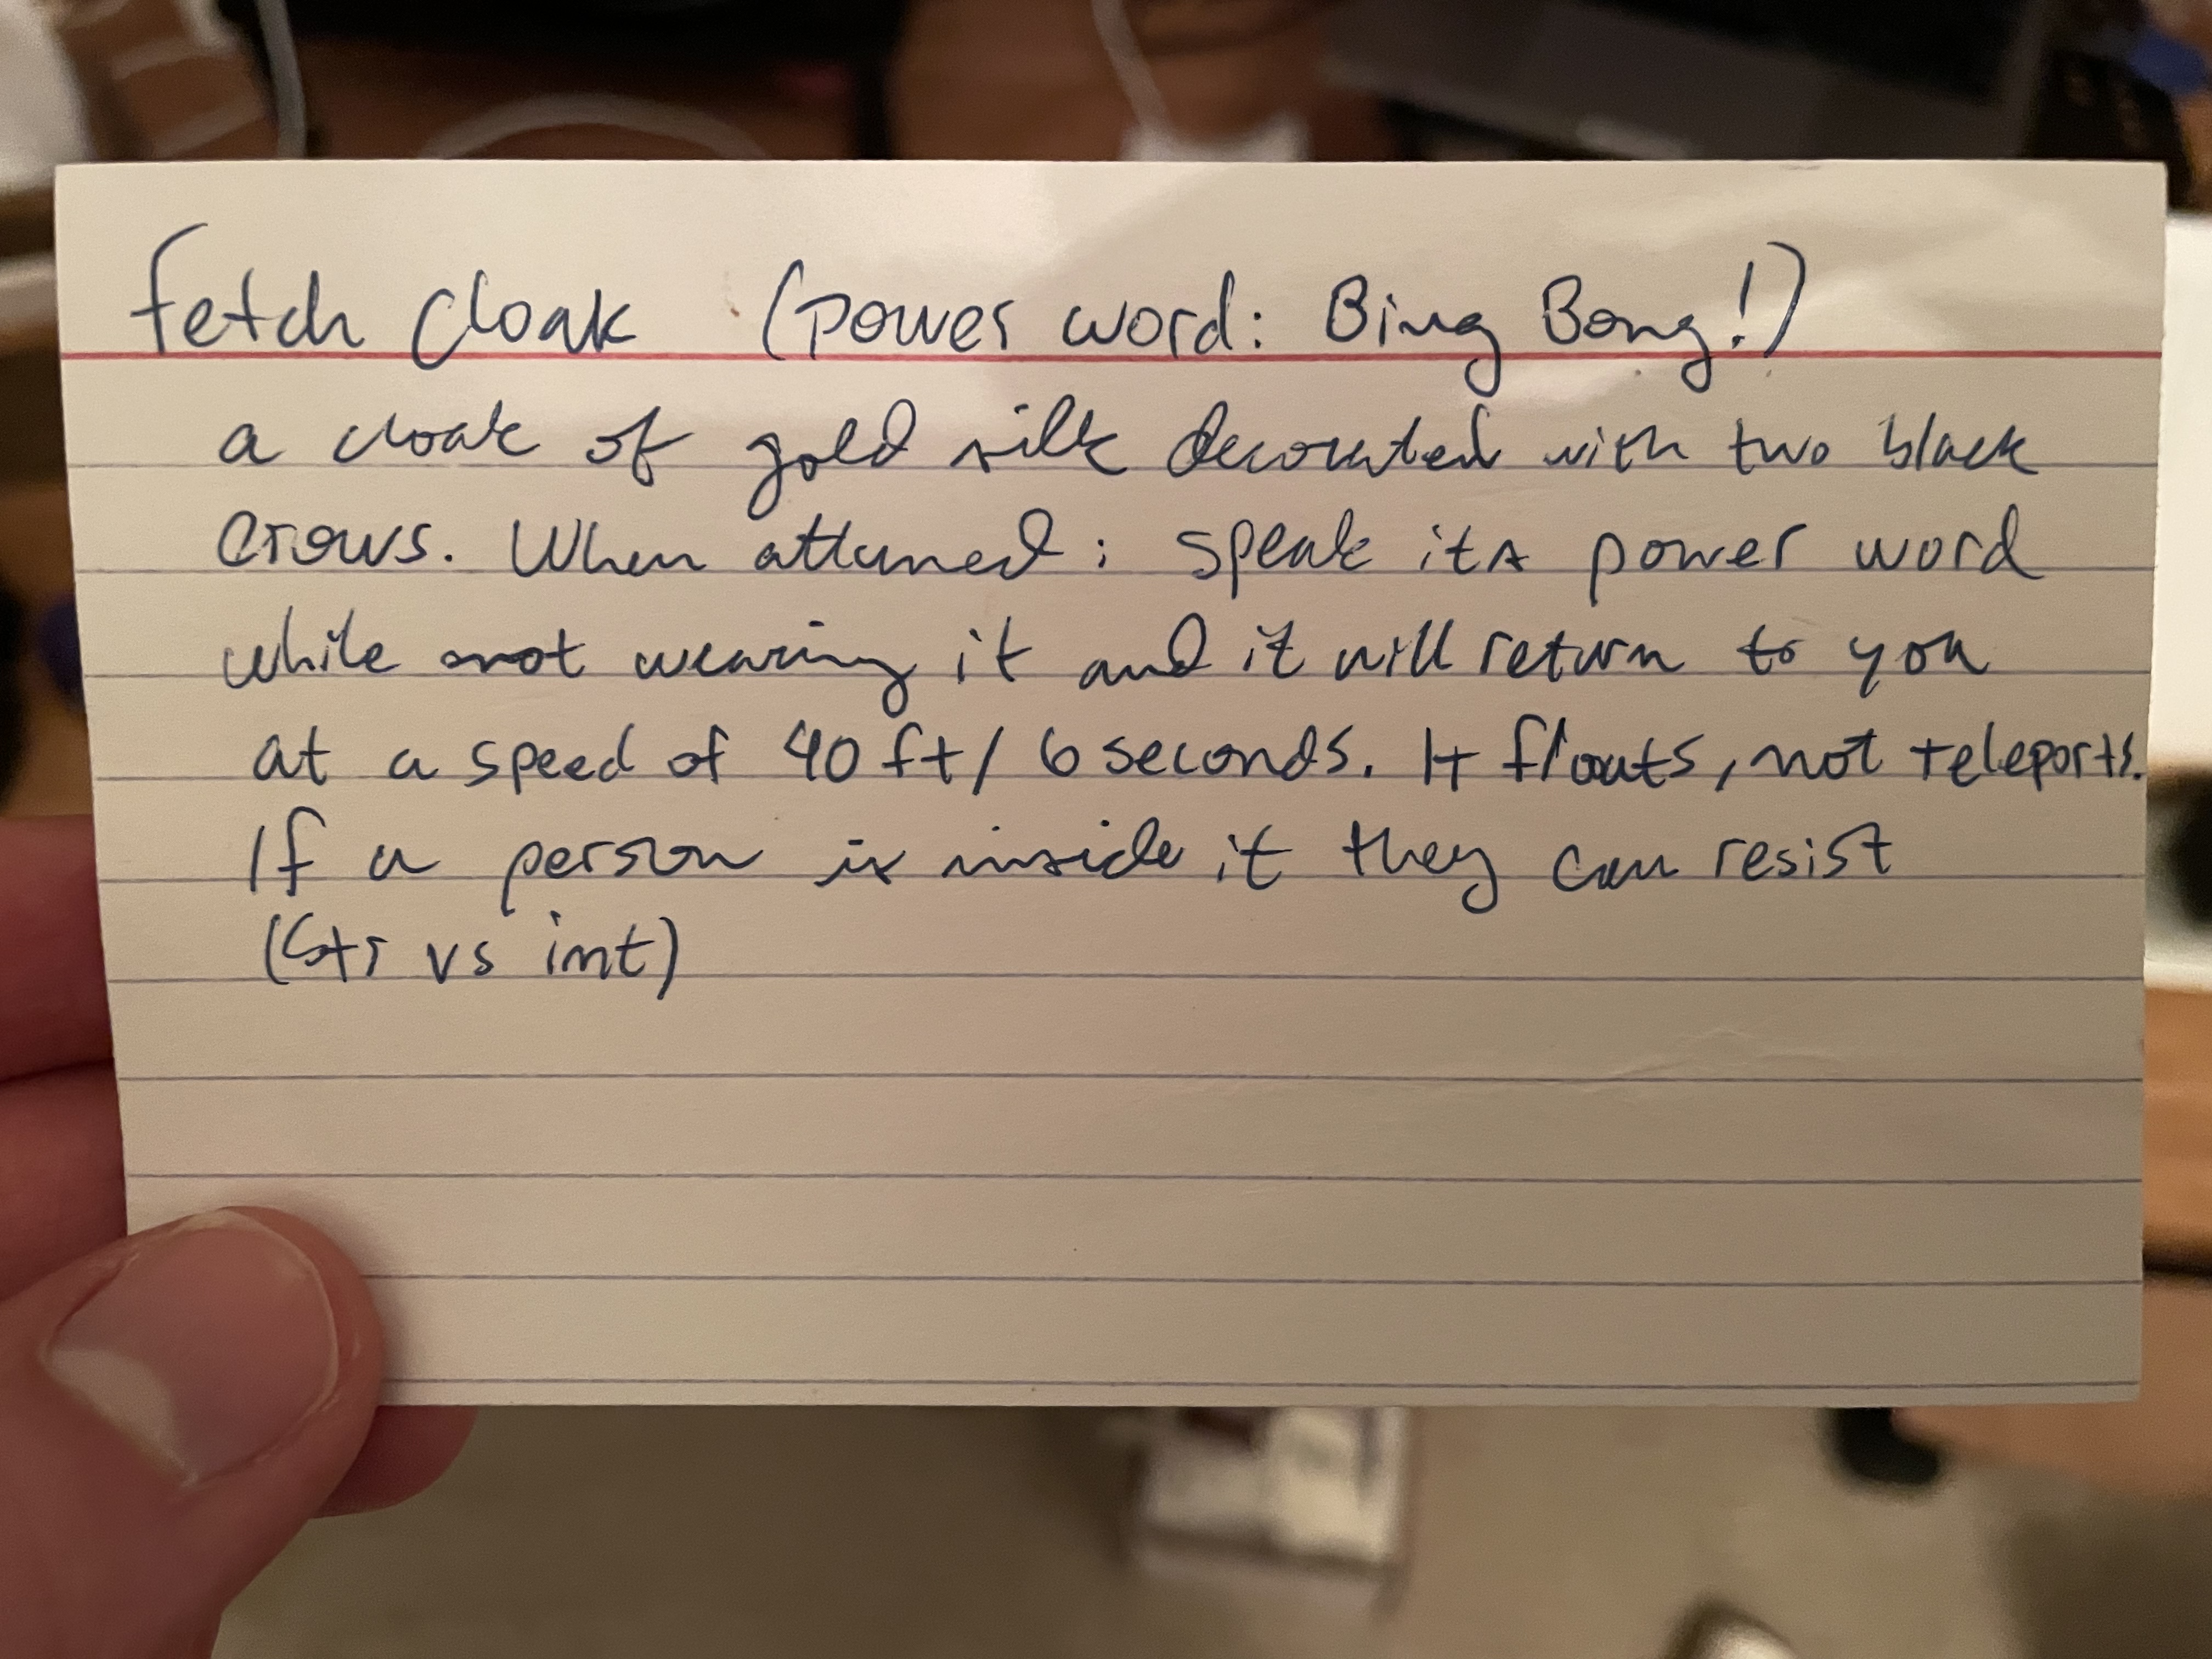 Fetch Cloak (power word: Bing Bong!)
a cloak of gold silk decorated with two black
crows. When attuned: speak its power word
while not wearing it and it will return to you
at a speed of 40 ft/ 6 seconds. It floats, not teleports.
If a person is inside it they can resist
(Str vs int)